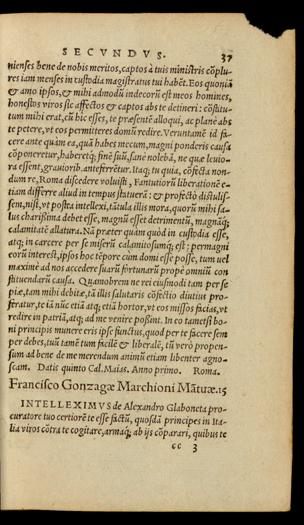 SECVNDVS. 37
nienses bene de nobis meritos, captos à tuis ministris cōplu-
res iam menses in custodia magistratus tui habēt. Eos quoniā
& amo ipsos, & mihi admodū indecorū est meos homines,
honestos viros sic affectos & captos abs te detineri: cōstitu-
tum mihi erat, cū hic esses, te præsentē alloqui, ac planè abs
te petere, vt eos permitteres domū redire. Veruntamē id fa-
cere ante quàm ea, quā habes mecum, magni ponderis causa
cōponeretur, haberetq; finē suū, sanè nolebā, ne que leuio-
ra essent, grauiorib. anteferrētur. Itaq; tu quia, cōfecta non-
dum re, Roma discedere voluisti, Fantutiorū liberationē e-
tiam differre aliud in tempus statuerā: & profectò distulis-
sem, nisi, vt postea intellexi, tātula illis mora, quorū mihi sa-
lus charissima debet esse, magnū esset detrimentū, magnāq;
calamitatē allatura. Nā præter quàm quòd in custodia esse,
atq; in carcere per se miserū calamitosumq; est: permagni
eorū interest, ipsos hoc tēpore cùm domi esse posse, tum vel
maximè ad nos accedere suarū fortunarū propè omniū con
stituendarū causa. Quamobrem ne rei eiusmodi tam per se
piæ, tam mihi debitæ, tā illis salutaris cōfectio diutius pro-
feratur, te iā nūc etiā atq; etiā hortor, vt eos missos facias, vt
redire in patriā, atq; ad me venire poßint. In eo tametsi bo-
ni principis munere eris ipse functus, quod per te facere sem
per debes, tuū tamē tum facilē & liberalē, tū verò propen-
sum ad bene de me merendum animū etiam libenter agno-
scam. Datis quinto Cal. Maias. Anno primo. Roma.
Francisco Gonzagæ Marchioni Mātuæ. 15
INTELLEXIMVS de Alexandro Glaboneta pro-
curatore tuo certiorē te esse factū, quosdā principes in Ita-
lia viros cōtra te cogitare, armaq; ab ijs cōparari, quibus te
cc 3